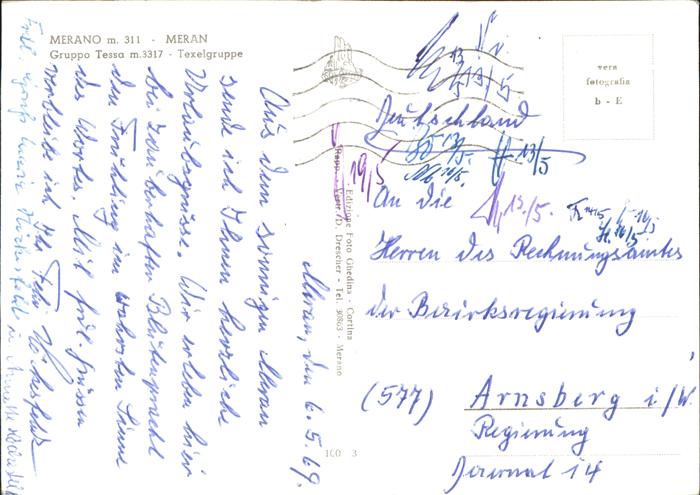 MERANO m. 311 - MERAN
Gruppo Tessa m.3317 - Texelgruppe
vera
fotografia
b - E
Meran, den 6.5.69.
Aus dem sonnigen Meran
sende ich Ihnen herzliche
Urlaubsgrüsse. Wir erleben hier
bei zauberhafter Blütenpracht
den Frühling im wahrsten Sinne
des Wortes. Mit frdl. Grüssen
verbleibe ich Ihr
Frdl. Grüße
Edizione Foto Ghedina - Cortina
Rapp. - Vertr. D. Drescher - Tel. 30863 - Merano
100 3
Deutschland
13/5
13/5.
14/5.
19/5
13/5.
14/5
16/5
An die
Herren des Rechnungsamtes
der Bezirksregierung
(577) Arnsberg i/W.
Regierung
Journal 14